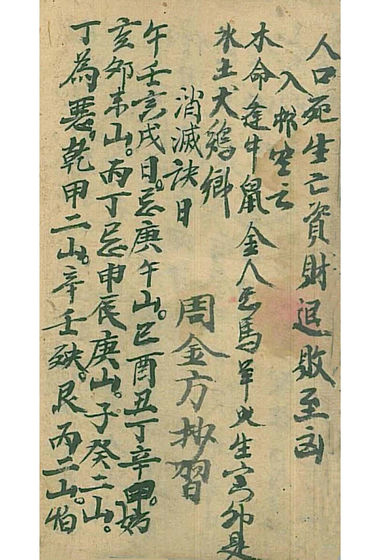 人口死生亡資財退敗至凶
入邦空云
木命逢牛鼠金人忌馬羊火生寅卯是
水土犬鷄鄉
消滅訣日
周金方抄習
午壬寅戌日。忌庚午山。巳酉丑丁辛甲
亥卯未山。丙丁忌申辰庚山。子癸二山。
丁為惡。乾甲二山。辛壬殃。艮丙二山。怕